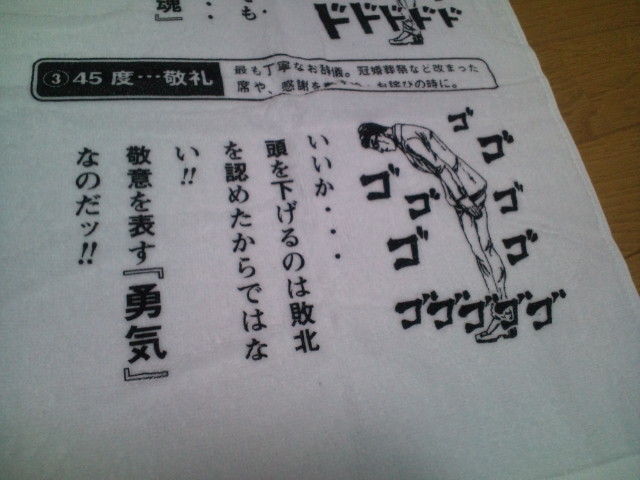 魂』
・・
ても
ドドドドドド
③45度…敬礼
最も丁寧なお辞儀。冠婚葬祭など改まった
席や、感謝を お詫びの時に。
いいか・・・
頭を下げるのは敗北
を認めたからではな
い!!
敬意を表す『勇気』
なのだッ!!
ゴゴゴゴゴゴゴ
ゴゴゴゴゴ